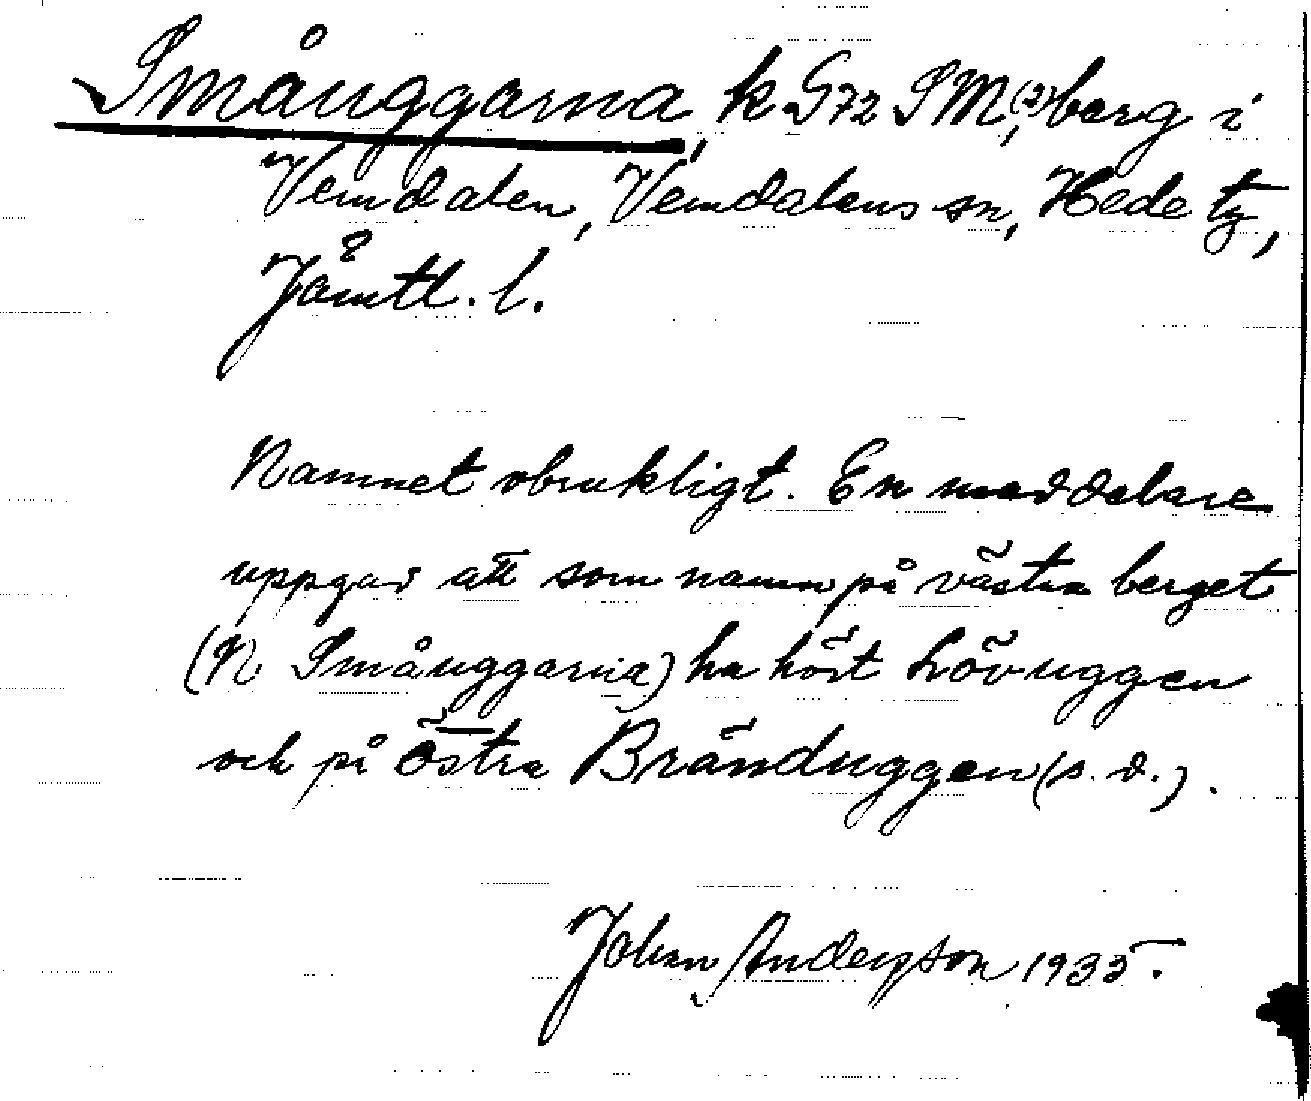 Småuggarna, k G72 SM, (2) berg i
Vemdalen, Vemdalens sn, Hede tg,
Jämtl. l.
Namnet obrukligt. En meddelare
uppgav att som namn på västra berget
(N Småuggarna) ha hört Lövuggen
och på östra Bränduggen (s. d.).
Johan Anderson 1935.